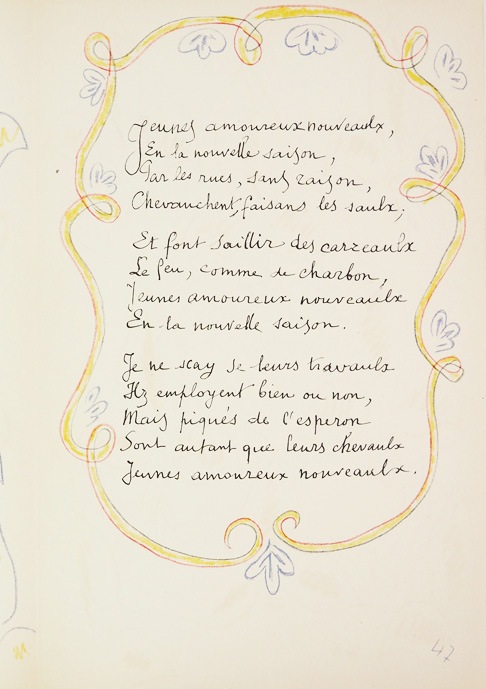 Jeunes amoureux nouveaulx,
En la nouvelle saison,
Par les rues, sans raison,
Chevauchent, faisans les saulx;
Et font saillir des carreaulx
Le feu, comme de charbon,
Jeunes amoureux nouveaulx
En la nouvelle saison.
Je ne sçay se leurs travaulx
Ilz employent bien ou non,
Mais piqués de l'esperon
Sont autant que leurs chevaulx
Jeunes amoureux nouveaulx.
47